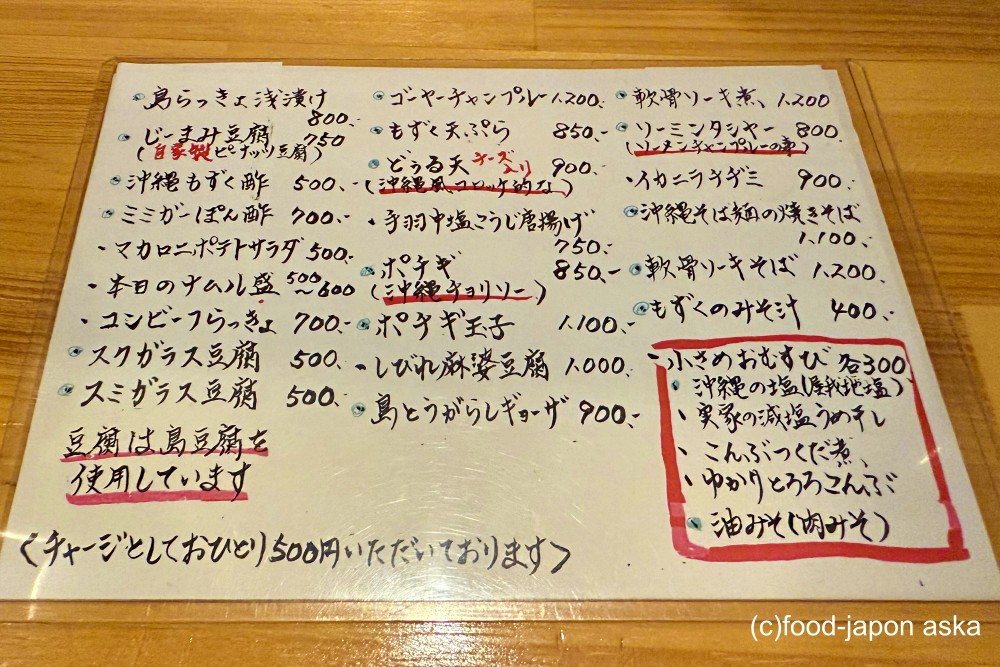 島らっきょ浅漬け
800.-
じーまみ豆腐 750
(自家製ピーナッツ豆腐)
沖縄もずく酢 500.-
ミミガーぽん酢 700.-
・マカロニポテトサラダ 500.-
・本日のナムル盛 500〜600
・コンビーフらっきょ 700.-
スクガラス豆腐 500.
スミガラス豆腐 500.
豆腐は島豆腐を
使用しています
ゴーヤーチャンプルー 1.200.
もずく天ぷら 850.-
どぅる天 チーズ入り 900.-
(沖縄風コロッケ的な)
・手羽中塩こうじ唐揚げ
750.-
ポチギ 850.-
(沖縄チョリソー)
ポチギ玉子 1.100.-
・しびれ麻婆豆腐 1.000.
島とうがらしギョーザ 900.-
軟骨ソーキ煮 1.200
ソーミンタシャー 800.
(ソーメンチャンプルーの事)
・イカニラチヂミ 900.-
沖縄そば麺の焼きそば
1.100.-
軟骨ソーキそば 1.200.
もずくのみそ汁 400.-
小さめおむすび 各300
沖縄の塩(屋我地塩)
実家の減塩うめ干し
こんぶつくだ煮
ゆかりとろろこんぶ
油みそ(肉みそ)
<チャージとしておひとり500円いただいております>
(c)food-japon aska